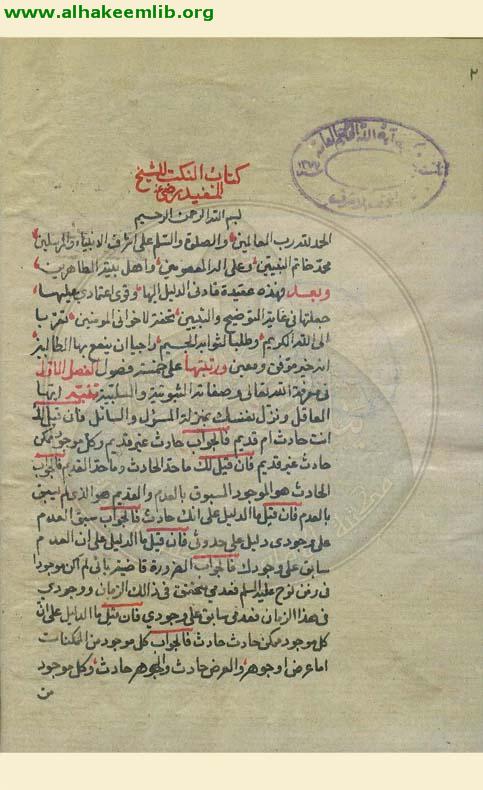 www.alhakeemlib.org
٢
كتاب النكت للشيخ
المفيد رضي عنه
بسم الله الرحمن الرحيم
الحمد لله رب العالمين والصلوة والسلم على اشرف الانبياء والمرسلين
محمد خاتم النبيين وعلى اله المعصومين واهل بيته الطاهرين
وبعد فهذه عقيدة قادني الدليل اليها وقوى اعتمادي عليها
جعلتها في غاية التوضيح والتبيين تحفة لاخواني المومنين تقربا
الى الله الكريم وطلبا لثوابه الجسيم راجيا ان ينفع بها الطالبين
انه خير موفق ومعين ورتبتها على خمسة فصول الفصل الاول
في معرفة الله تعالى وصفاته الثبوتية والسلبية تنبيه ايها
العاقل ونزل نفسك بمنزلة المسؤل والسائل فان قيل لك
انت حادث ام قديم فالجواب حادث غير قديم وكل موجود ممكن
حادث غير قديم فان قيل لك ما حد الحادث وما حد القديم فالجواب
الحادث هو الموجود المسبوق بالعدم والقديم هو الذي لم يسبق
بالعدم فان قيل ما الدليل على انك حادث فالجواب سبق العدم
على وجودي دليل على حدوثي فان قيل ما الدليل على ان العدم
سابق على وجودك فالجواب الضرورة قاضية باني لم اكن موجود
في زمن نوح عليه السلم فعدمي تحقق في ذالك الزمان ووجودي
في هذا الزمان فعدمي سابق على وجودي فان قيل ما الدليل على ان
كل موجود ممكن حادث حادث فالجواب كل موجود من الممكنات
اما عرض او جوهر والعرض حادث والجوهر حادث وكل موجود
من